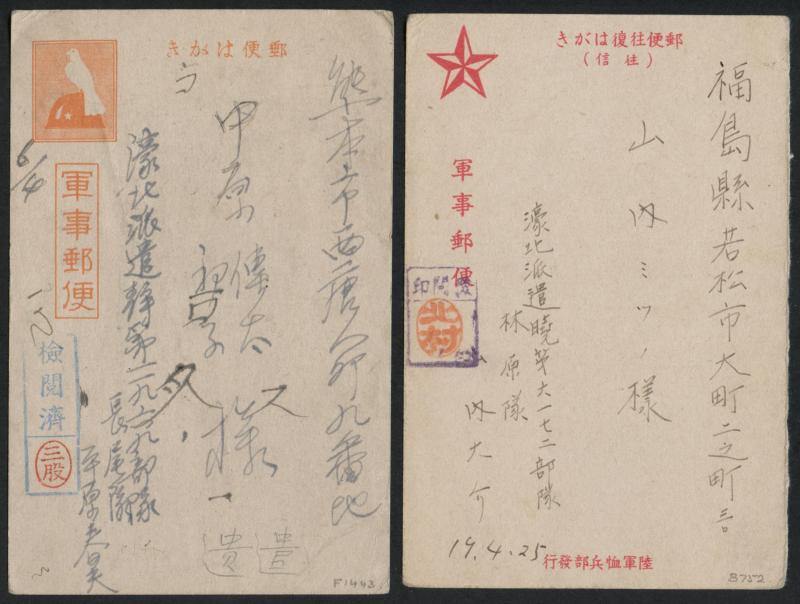 郵便はがき
軍事郵便
熊本市西唐人町九番地
甲原傳太
様
濠北派遣静第一九六九部隊
長尾隊
検閲済
三股
6/4
遺
F1443
郵便往復はがき
(往信)
軍事郵便
福島縣若松市大町二之町
山内ミツノ様
濠北派遣暁第六一七二部隊
林原隊
山内大介
検閲印
北村
19.4.25
陸軍恤兵部發行
B752